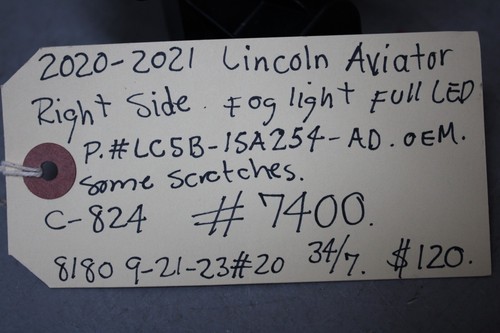 2020-2021 Lincoln Aviator
Right Side. Fog light Full LED
P.#LC5B-15A254-AD. OEM.
Some Scratches.
C-824 #7400.
8180 9-21-23#20 34/7. $120.